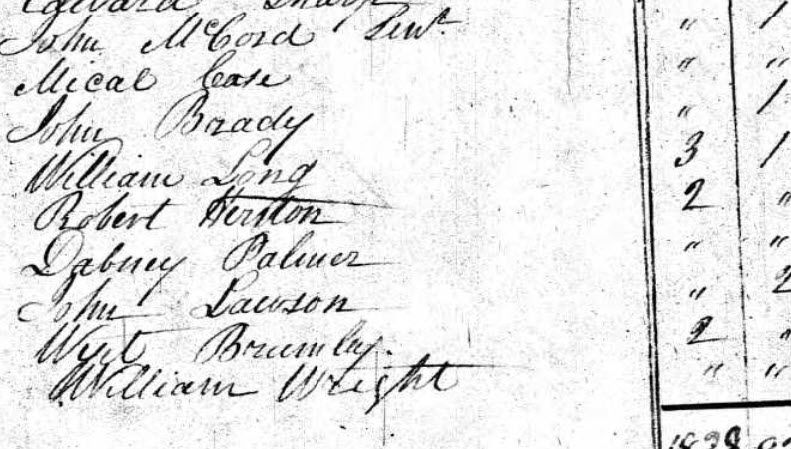 Edward Sharp " 1
John McCord Senr " "
Mical Case " 1
John Brady 3 1
William Long 2 "
Robert " "
Dabney Palmer " 2
John Lawson 2 "
Brumley " "
William Wright